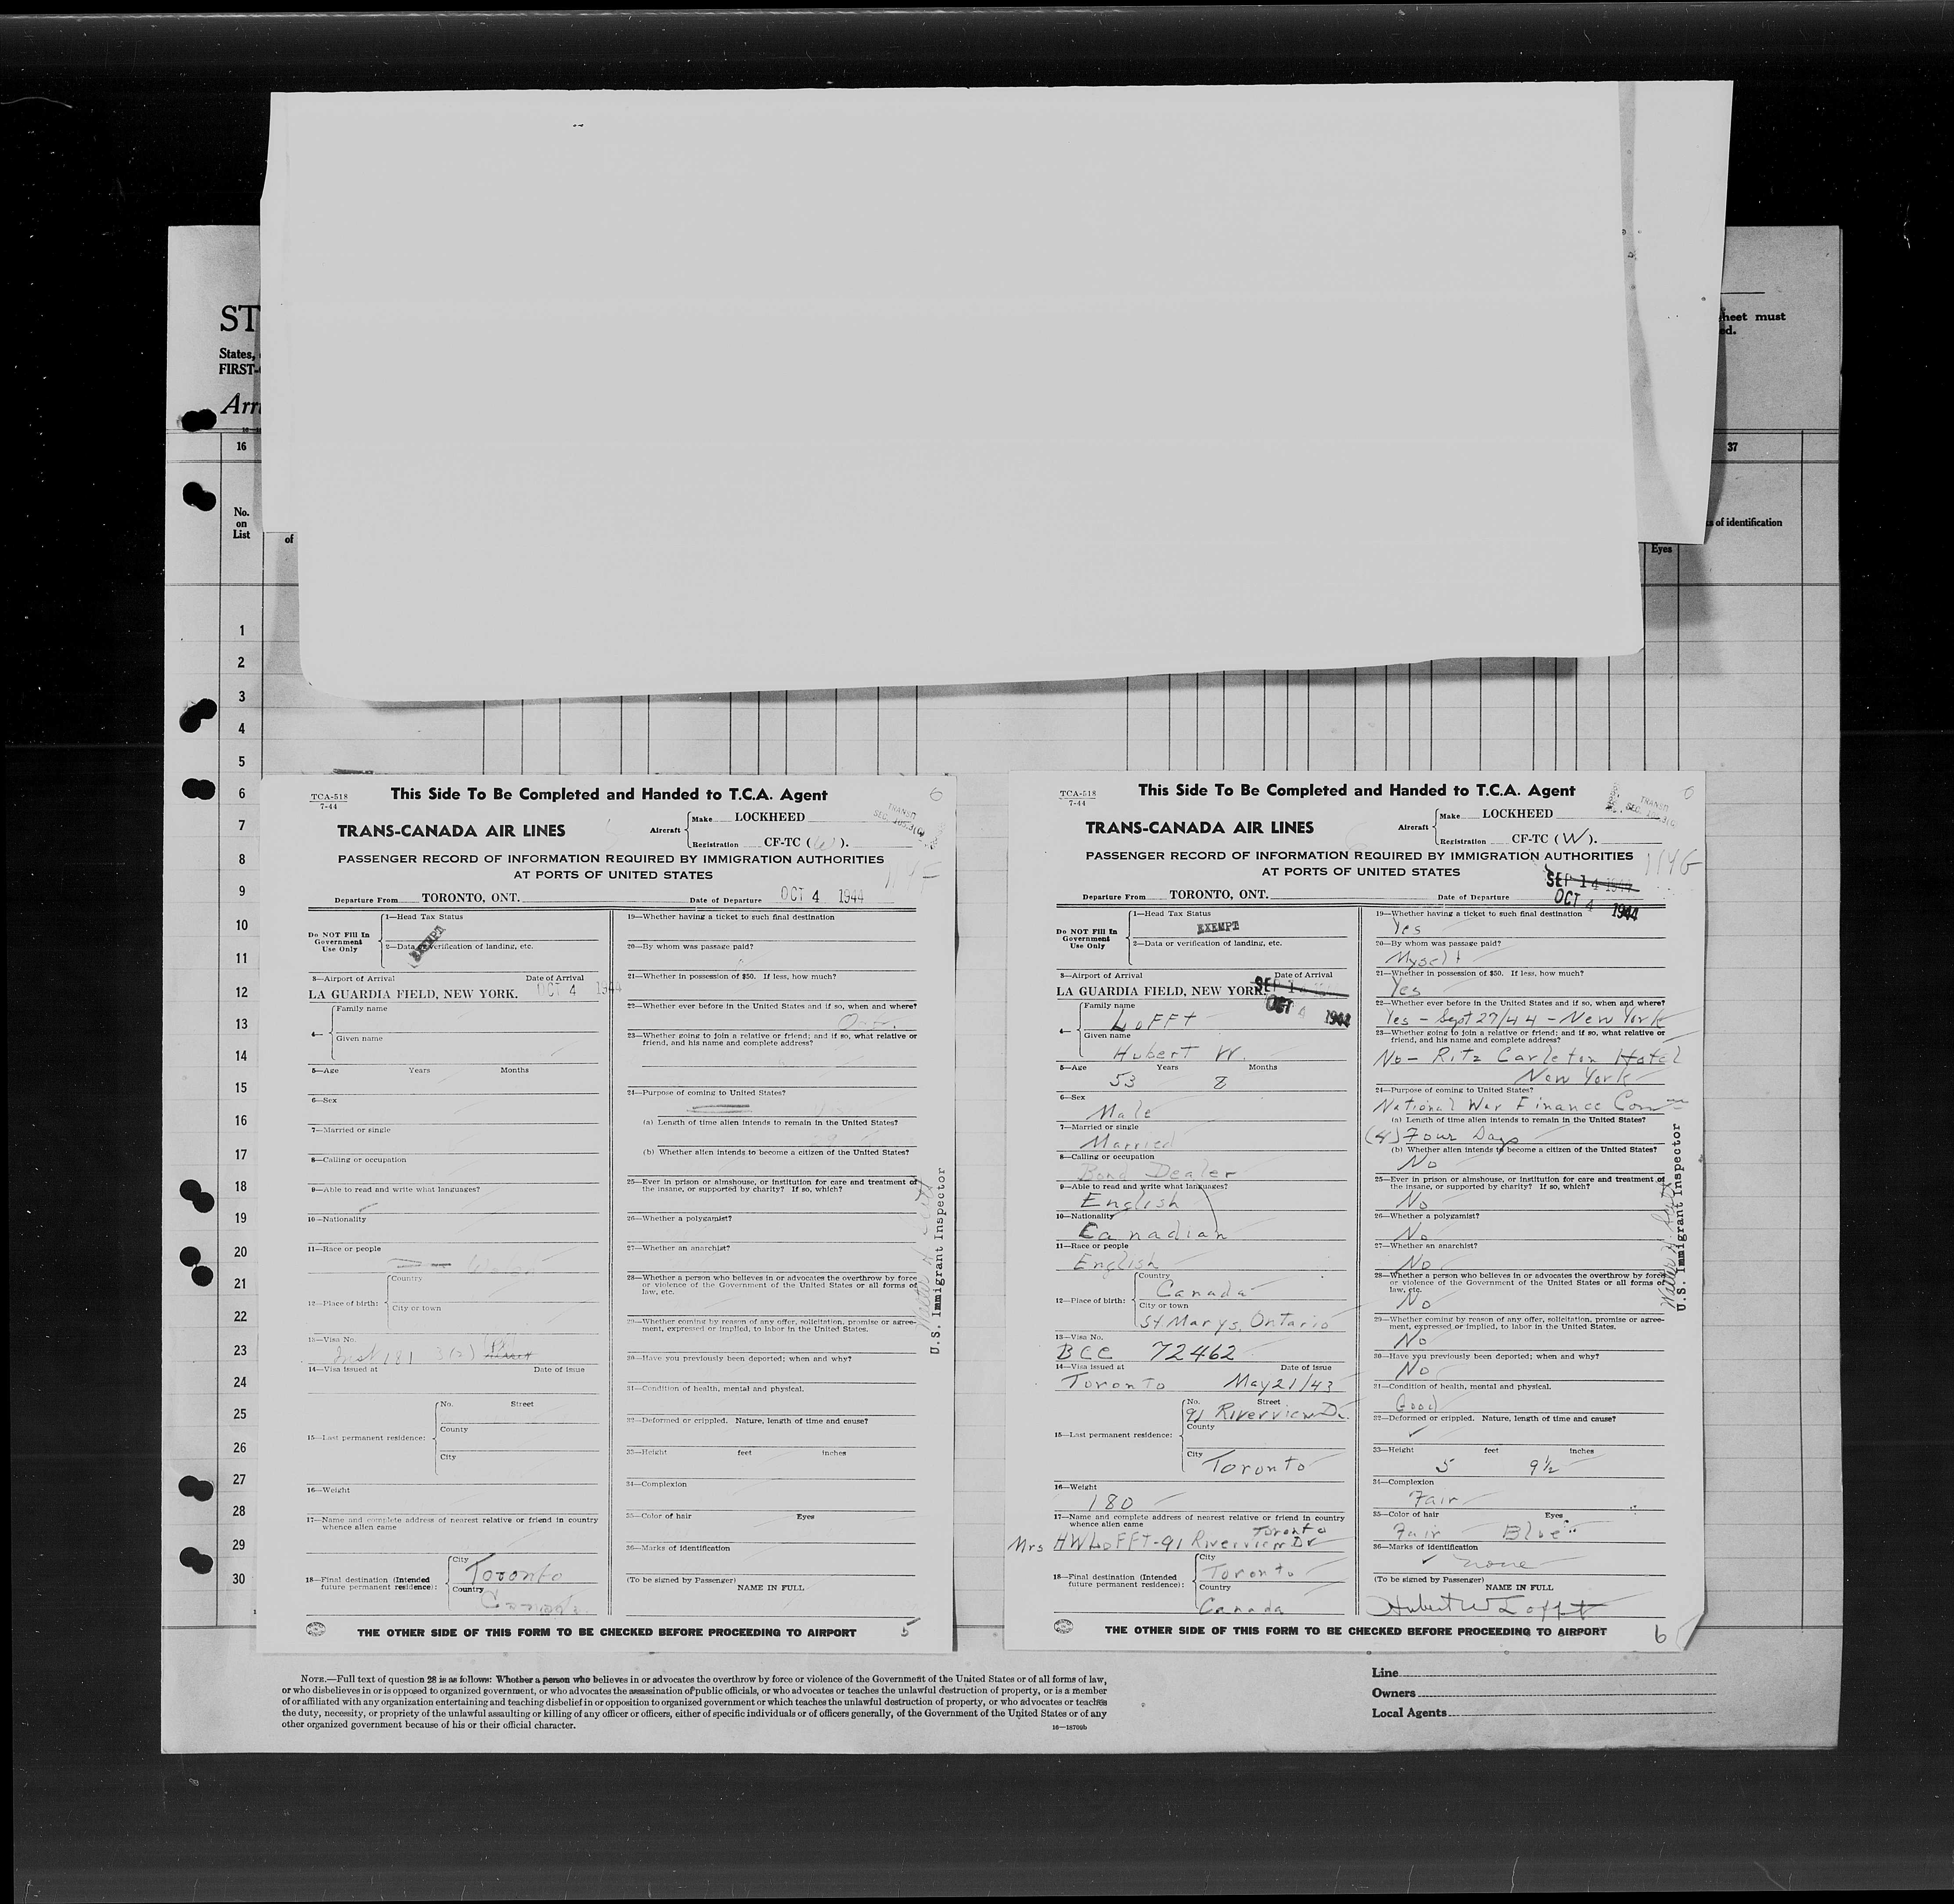 ST
States,
FIRST-
Arri
16
No.
on
List
of
heet must
ed.
37
s of identification
Eyes
1
2
3
4
5
6
7
8
9
10
11
12
13
14
15
16
17
18
19
20
21
22
23
24
25
26
27
28
29
30
TCA-518
7-44
This Side To Be Completed and Handed to T.C.A. Agent
6
TRANS-CANADA AIR LINES
Aircraft
Make LOCKHEED
Registration CF-TC (W).
TRANSIT
PASSENGER RECORD OF INFORMATION REQUIRED BY IMMIGRATION AUTHORITIES
AT PORTS OF UNITED STATES
Departure From TORONTO, ONT. Date of Departure OCT 4 1944
Do NOT Fill In
Government
Use Only
1—Head Tax Status
EXEMPT
2—Data or verification of landing, etc.
3—Airport of Arrival Date of Arrival
LA GUARDIA FIELD, NEW YORK. OCT 4 1944
4—
Family name
Given name
5—Age Years Months
6—Sex
7—Married or single
8—Calling or occupation
9—Able to read and write what languages?
10—Nationality
11—Race or people
12—Place of birth:
Country
City or town
13—Visa No.
14—Visa issued at Date of issue
15—Last permanent residence:
No. Street
County
City
16—Weight
17—Name and complete address of nearest relative or friend in country
whence alien came
18—Final destination (Intended
future permanent residence):
City Toronto
Country Canada
19—Whether having a ticket to such final destination
20—By whom was passage paid?
21—Whether in possession of $50. If less, how much?
22—Whether ever before in the United States and if so, when and where?
23—Whether going to join a relative or friend; and if so, what relative or
friend, and his name and complete address?
24—Purpose of coming to United States?
(a) Length of time alien intends to remain in the United States?
(b) Whether alien intends to become a citizen of the United States?
25—Ever in prison or almshouse, or institution for care and treatment of
the insane, or supported by charity? If so, which?
26—Whether a polygamist?
27—Whether an anarchist?
28—Whether a person who believes in or advocates the overthrow by force
or violence of the Government of the United States or all forms of
law, etc.
29—Whether coming by reason of any offer, solicitation, promise or agree-
ment, expressed or implied, to labor in the United States.
30—Have you previously been deported; when and why?
31—Condition of health, mental and physical.
32—Deformed or crippled. Nature, length of time and cause?
33—Height feet inches
34—Complexion
35—Color of hair Eyes
36—Marks of identification
(To be signed by Passenger)
NAME IN FULL
U.S. Immigrant Inspector
THE OTHER SIDE OF THIS FORM TO BE CHECKED BEFORE PROCEEDING TO AIRPORT
5
TCA-518
7-44
This Side To Be Completed and Handed to T.C.A. Agent
TRANS-CANADA AIR LINES
Aircraft
Make LOCKHEED
Registration CF-TC (W).
TRANSIT
PASSENGER RECORD OF INFORMATION REQUIRED BY IMMIGRATION AUTHORITIES
AT PORTS OF UNITED STATES
SEP 14 1944
Departure From TORONTO, ONT. Date of Departure OCT 4 1944
Do NOT Fill In
Government
Use Only
1—Head Tax Status
EXEMPT
2—Data or verification of landing, etc.
3—Airport of Arrival Date of Arrival
LA GUARDIA FIELD, NEW YORK. SEP 14
OCT 4 1944
4—
Family name
LoFFt
Given name
Hubert W.
5—Age Years Months
53 8
6—Sex
Male
7—Married or single
Married
8—Calling or occupation
Bond Dealer
9—Able to read and write what languages?
English
10—Nationality
Canadian
11—Race or people
English
12—Place of birth:
Country
Canada
City or town
St Marys, Ontario
13—Visa No.
BCC 72462
14—Visa issued at Date of issue
Toronto May 21/43
15—Last permanent residence:
No. Street
91 Riverview Dr.
County
City
Toronto
16—Weight
180
17—Name and complete address of nearest relative or friend in country
whence alien came
Toronto
Mrs HW LoFFT-91 Riverview Dr
18—Final destination (Intended
future permanent residence):
City
Toronto
Country
Canada
19—Whether having a ticket to such final destination
Yes
20—By whom was passage paid?
Myself
21—Whether in possession of $50. If less, how much?
Yes
22—Whether ever before in the United States and if so, when and where?
Yes - Sept 27/44 - New York
23—Whether going to join a relative or friend; and if so, what relative or
friend, and his name and complete address?
No - Ritz Carleton Hotel
New York
24—Purpose of coming to United States?
National War Finance Com
(a) Length of time alien intends to remain in the United States?
(4) Four Days
(b) Whether alien intends to become a citizen of the United States?
No
25—Ever in prison or almshouse, or institution for care and treatment of
the insane, or supported by charity? If so, which?
No
26—Whether a polygamist?
No
27—Whether an anarchist?
No
28—Whether a person who believes in or advocates the overthrow by force
or violence of the Government of the United States or all forms of
law, etc.
No
29—Whether coming by reason of any offer, solicitation, promise or agree-
ment, expressed or implied, to labor in the United States.
No
30—Have you previously been deported; when and why?
No
31—Condition of health, mental and physical.
Good
32—Deformed or crippled. Nature, length of time and cause?
33—Height feet inches
5 9½
34—Complexion
Fair
35—Color of hair Eyes
Fair Blue
36—Marks of identification
none
(To be signed by Passenger)
NAME IN FULL
Hubert W Lofft
U.S. Immigrant Inspector
THE OTHER SIDE OF THIS FORM TO BE CHECKED BEFORE PROCEEDING TO AIRPORT
6
NOTE.—Full text of question 28 is as follows: Whether a person who believes in or advocates the overthrow by force or violence of the Government of the United States or of all forms of law,
or who disbelieves in or is opposed to organized government, or who advocates the assassination of public officials, or who advocates or teaches the unlawful destruction of property, or is a member
of or affiliated with any organization entertaining and teaching disbelief in or opposition to organized government or which teaches the unlawful destruction of property, or who advocates or teaches
the duty, necessity, or propriety of the unlawful assaulting or killing of any officer or officers, either of specific individuals or of officers generally, of the Government of the United States or of any
other organized government because of his or their official character.
16—18709b
Line
Owners
Local Agents